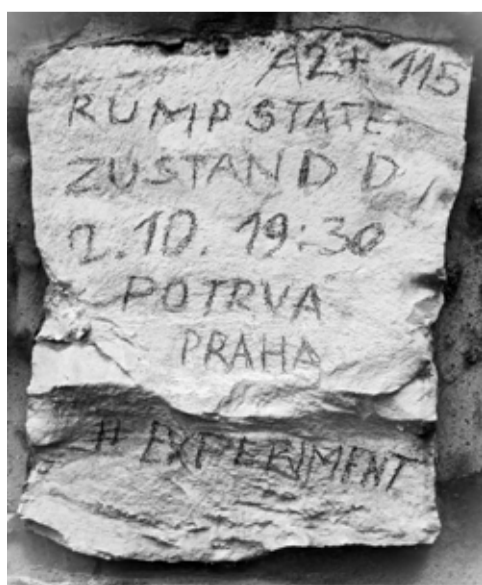 A2+ 115
RUMPSTATE
ZUSTAND D,
2.10. 19:30
POTRVA
PRAHA
# EXPERIMENT